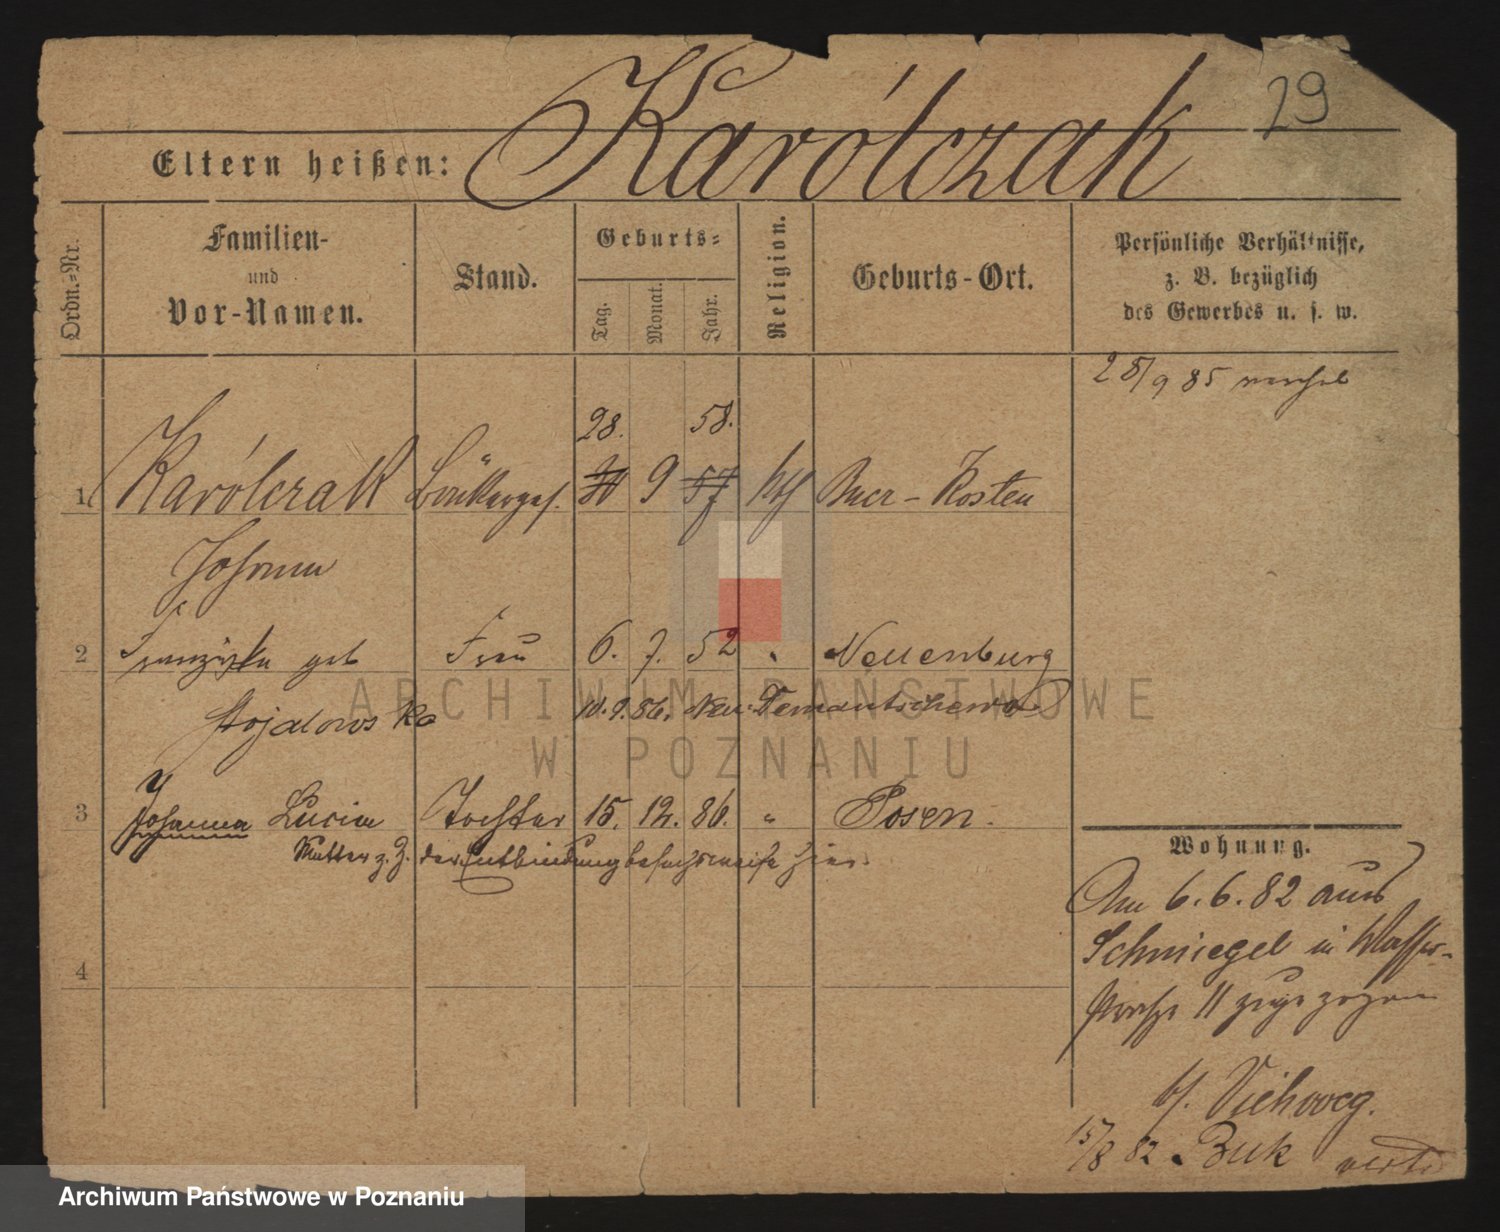 29
Karólczak
Eltern heißen:
Ordn.-Nr.
Familien-
und
Vor-Namen.
Stand.
Geburts-
Tag.
Monat.
Jahr.
Religion.
Geburts-Ort.
Persönliche Verhältnisse,
z. B. bezüglich
des Gewerbes u. s. w.
28/9 85
28. 58.
1 Karólczak 9 57 kth - Kosten
Johann
2 Franziska geb Frau 6. 7. 52 " Neuenburg
Stojalowska 10.9.86. Neu-Demantschewo
3 Johanna Lucia Tochter 15. 12. 86. " Posen.
Mutter z. Z. der Entbindung besuchsweise hier.
4
Wohnung.
Am 6.6.82 aus
Schmiegel in Wasser-
straße 11 zugezogen
b/. Viehweg.
15/8 82. Buk
ARCHIWUM PAŃSTWOWE
W POZNANIU
Archiwum Państwowe w Poznaniu